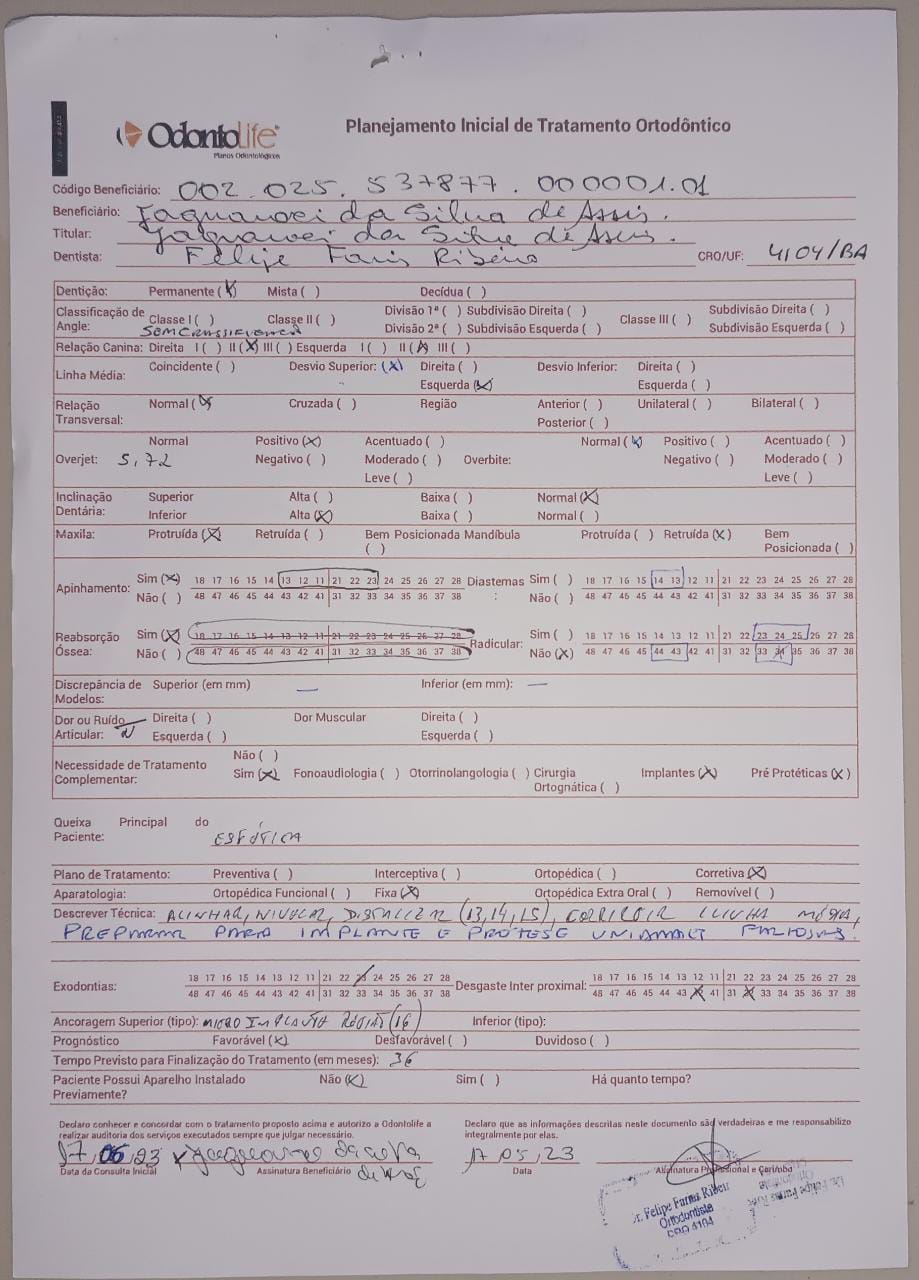 OdontoLife
Planos Odontológicos
Planejamento Inicial de Tratamento Ortodôntico
Código Beneficiário: 002.025.537877.000001.01
Beneficiário: da Silva de Assis.
Titular: da Silva de Assis.
Dentista: Felipe Farias Ribeiro CRO/UF: 4104/BA
Dentição: Permanente (X) Mista ( ) Decídua ( )
Classificação de Angle: Classe I ( ) Classe II ( ) Divisão 1ª ( ) Subdivisão Direita ( ) Classe III ( ) Subdivisão Direita ( )
Divisão 2ª ( ) Subdivisão Esquerda ( ) Subdivisão Esquerda ( )
Relação Canina: Direita I ( ) II (X) III ( ) Esquerda I ( ) II (X) III ( )
Linha Média: Coincidente ( ) Desvio Superior: (X) Direita ( ) Desvio Inferior: Direita ( )
Esquerda (X) Esquerda ( )
Relação Transversal: Normal (X) Cruzada ( ) Região Anterior ( ) Unilateral ( ) Bilateral ( )
Posterior ( )
Normal Positivo (X) Acentuado ( ) Normal (X) Positivo ( ) Acentuado ( )
Overjet: 5,72 Negativo ( ) Moderado ( ) Overbite: Negativo ( ) Moderado ( )
Leve ( ) Leve ( )
Inclinação Dentária: Superior Alta ( ) Baixa ( ) Normal (X)
Inferior Alta (X) Baixa ( ) Normal ( )
Maxila: Protruída (X) Retruída ( ) Bem Posicionada ( ) Mandíbula Protruída ( ) Retruída (X) Bem Posicionada ( )
Apinhamento: Sim (X) 18 17 16 15 14 13 12 11 21 22 23 24 25 26 27 28 Diastemas: Sim ( ) 18 17 16 15 14 13 12 11 21 22 23 24 25 26 27 28
Não ( ) 48 47 46 45 44 43 42 41 31 32 33 34 35 36 37 38 Não ( ) 48 47 46 45 44 43 42 41 31 32 33 34 35 36 37 38
Reabsorção Óssea: Sim (X) 18 17 16 15 14 13 12 11 21 22 23 24 25 26 27 28 Radicular: Sim ( ) 18 17 16 15 14 13 12 11 21 22 23 24 25 26 27 28
Não ( ) 48 47 46 45 44 43 42 41 31 32 33 34 35 36 37 38 Não (X) 48 47 46 45 44 43 42 41 31 32 33 34 35 36 37 38
Discrepância de Modelos: Superior (em mm) — Inferior (em mm): —
Dor ou Ruído Articular: N Direita ( ) Dor Muscular Direita ( )
Esquerda ( ) Esquerda ( )
Necessidade de Tratamento Complementar: Não ( )
Sim (X) Fonoaudiologia ( ) Otorrinolangologia ( ) Cirurgia Ortognática ( ) Implantes (X) Pré Protéticas (X)
Queixa Principal do Paciente: ESTÉTICA
Plano de Tratamento: Preventiva ( ) Interceptiva ( ) Ortopédica ( ) Corretiva (X)
Aparatologia: Ortopédica Funcional ( ) Fixa (X) Ortopédica Extra Oral ( ) Removível ( )
Descrever Técnica: ALINHAR, NIVELAR, DISTALIZAR (13,14,15), CORRIGIR LINHA MÉDIA,
PREPARAR PARA IMPLANTE E PRÓTESE
Exodontias: 18 17 16 15 14 13 12 11 21 22 23 24 25 26 27 28 Desgaste Inter proximal: 18 17 16 15 14 13 12 11 21 22 23 24 25 26 27 28
48 47 46 45 44 43 42 41 31 32 33 34 35 36 37 38 48 47 46 45 44 43 42 41 31 32 33 34 35 36 37 38
Ancoragem Superior (tipo): MICRO IMPLANTE REGIÃO (16) Inferior (tipo):
Prognóstico Favorável (X) Desfavorável ( ) Duvidoso ( )
Tempo Previsto para Finalização do Tratamento (em meses): 36
Paciente Possui Aparelho Instalado Previamente? Não (X) Sim ( ) Há quanto tempo?
Declaro conhecer e concordar com o tratamento proposto acima e autorizo a Odontolife a realizar auditoria dos serviços executados sempre que julgar necessário.
Declaro que as informações descritas neste documento são verdadeiras e me responsabilizo integralmente por elas.
17 05 23 17 05 23
Data da Consulta Inicial Assinatura Beneficiário Data Assinatura Profissional e Carimbo
Dr. Felipe Farias Ribeiro
Ortodontista
CRO 4104